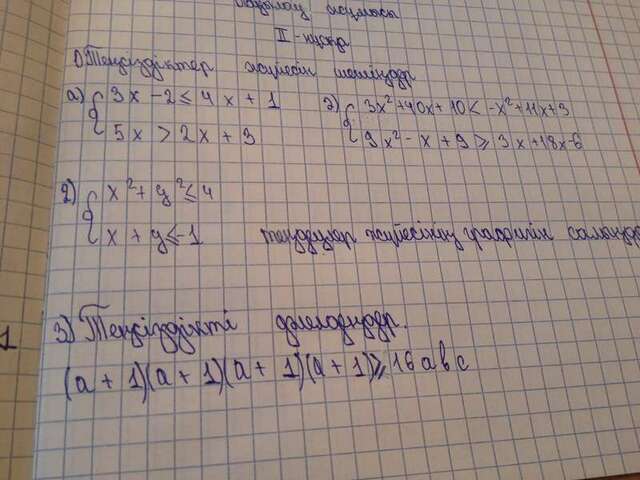 II - нұсқа
1) Теңсіздіктер жүйесін шешіңдер
а) { 3x - 2 ≤ 4x + 1
5x > 2x + 3
2) { 3x² + 40x + 10 < -x² + 11x + 3
9x² - x + 9 ≥ 3x² + 18x - 6
2) { x² + y² ≤ 4
x + y ≤ -1
теңдеулер жүйесінің графигін салыңдар
3) Теңсіздікті дәлелдеңдер.
(a + 1)(a + 1)(a + 1)(a + 1) ≥ 16abc